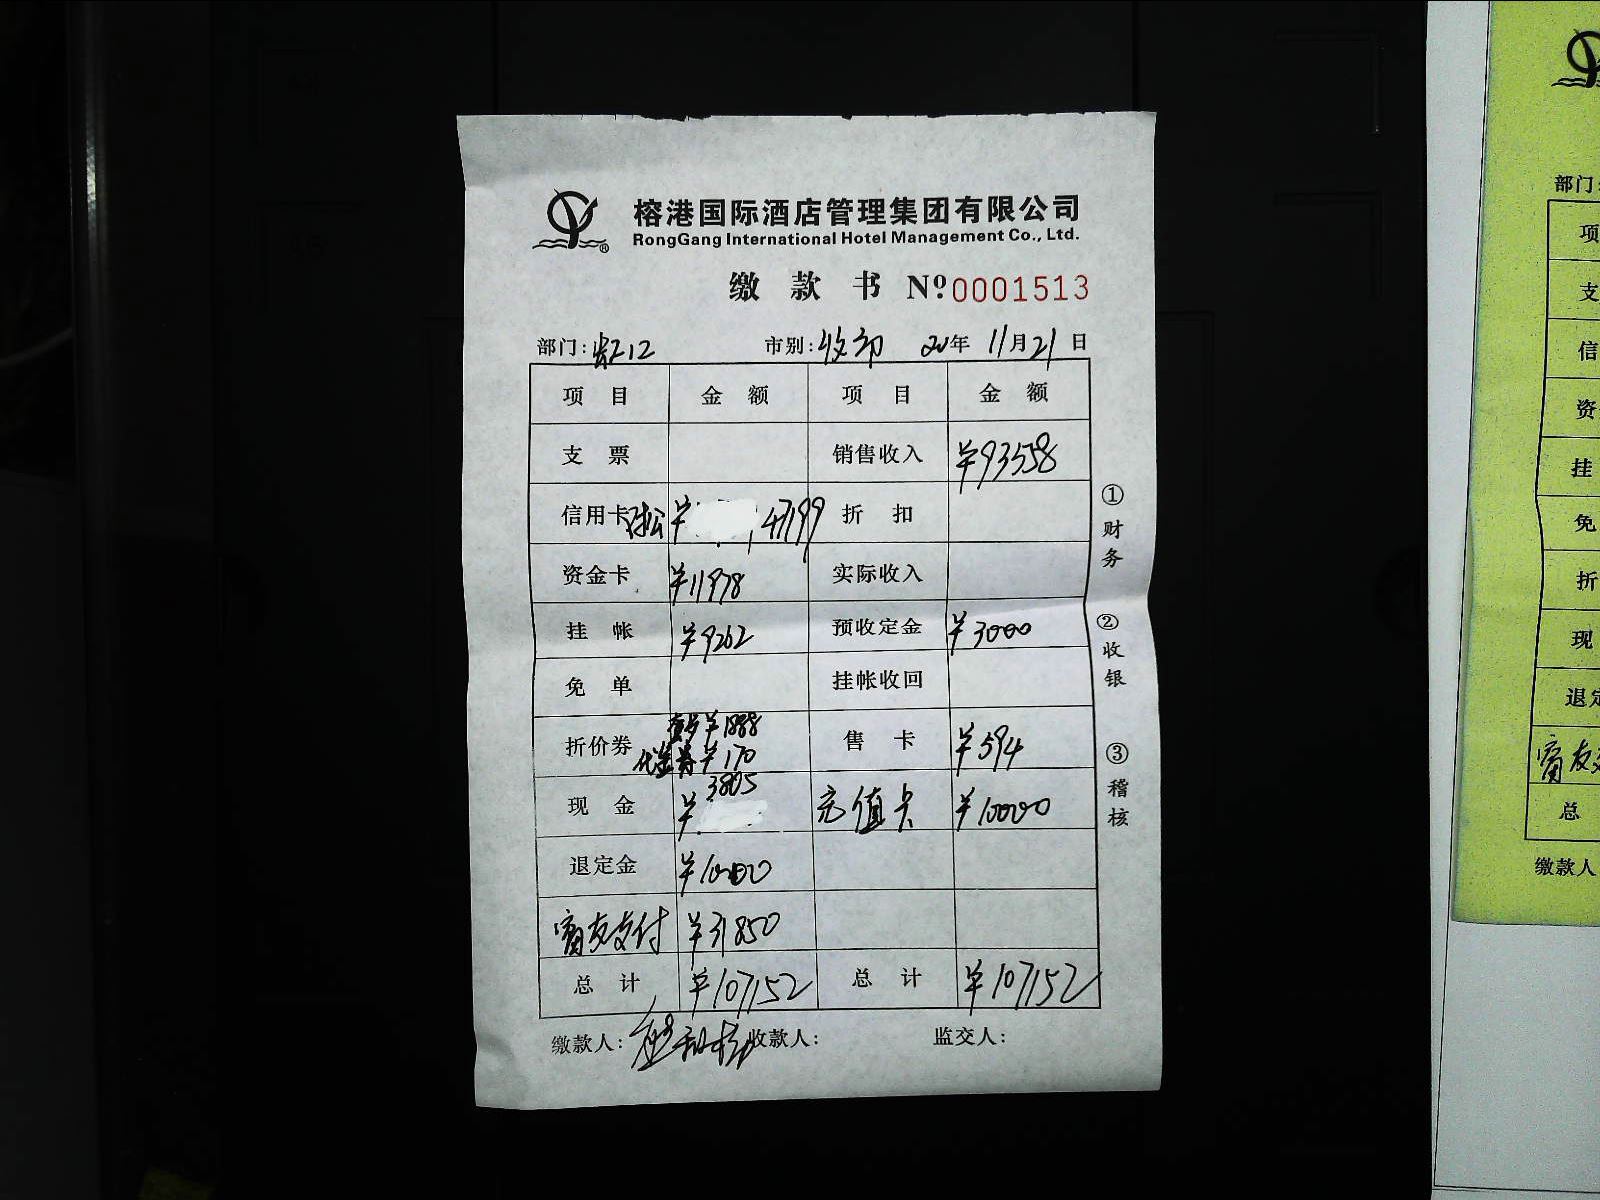 榕港国际酒店管理集团有限公司
RongGang International Hotel Management Co., Ltd.
缴款书 Nº 0001513
部门: 市别: 20年 11月21日
项目 金额 项目 金额
支票 销售收入 ¥93558
信用卡 ¥ 47199 折扣
资金卡 ¥11978 实际收入
挂帐 ¥9262 预收定金 ¥3000
免单 挂帐收回
折价券 ¥1888 售卡 ¥594
代金券 ¥170
现金 ¥3805 充值卡 ¥10000
退定金 ¥1000
富友支付 ¥31850
总计 ¥107152 总计 ¥107152
缴款人: 收款人: 监交人:
①财务
②收银
③稽核
部门:
项
支
信
资
挂
免
折
现
退定
富友支
总
缴款人